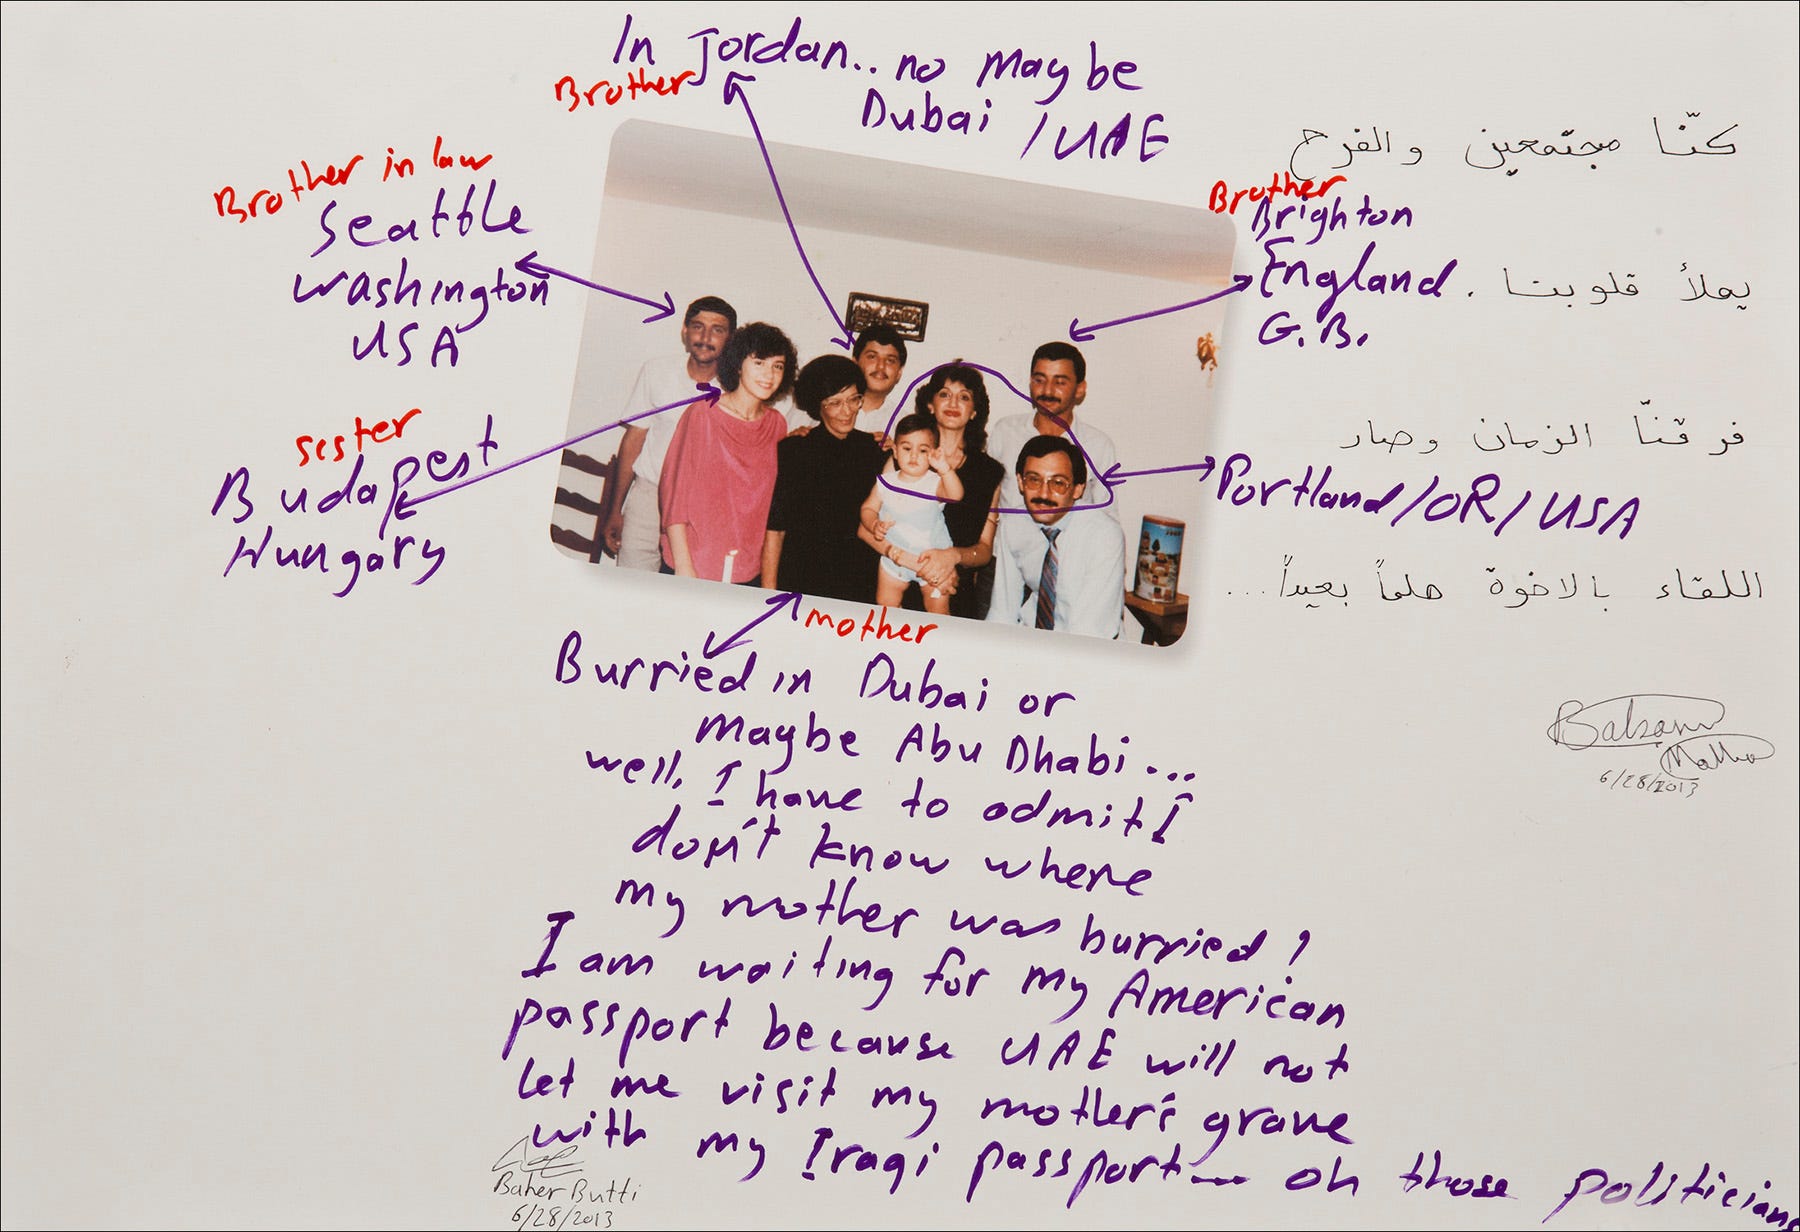 In Jordan.. no maybe
Dubai / UAE
Brother
Brother in law
Seattle
Washington
USA
sister
Budapest
Hungary
Brother
Brighton
England.
G.B.
Portland/OR/USA
mother
Burried in Dubai or
Maybe Abu Dhabi...
well, I have to admit I
don't know where
my mother was burried!
I am waiting for my American
passport because UAE will not
let me visit my mother's grave
with my Iraqi passport— oh those politicians
Baher Butti
6/28/2013
كنّا مجتمعين والفرح
يملأ قلوبنا
فرقنّا الزمان وصار
اللقاء بالاخوة حلماً بعيداً...
Balsam
6/28/2013